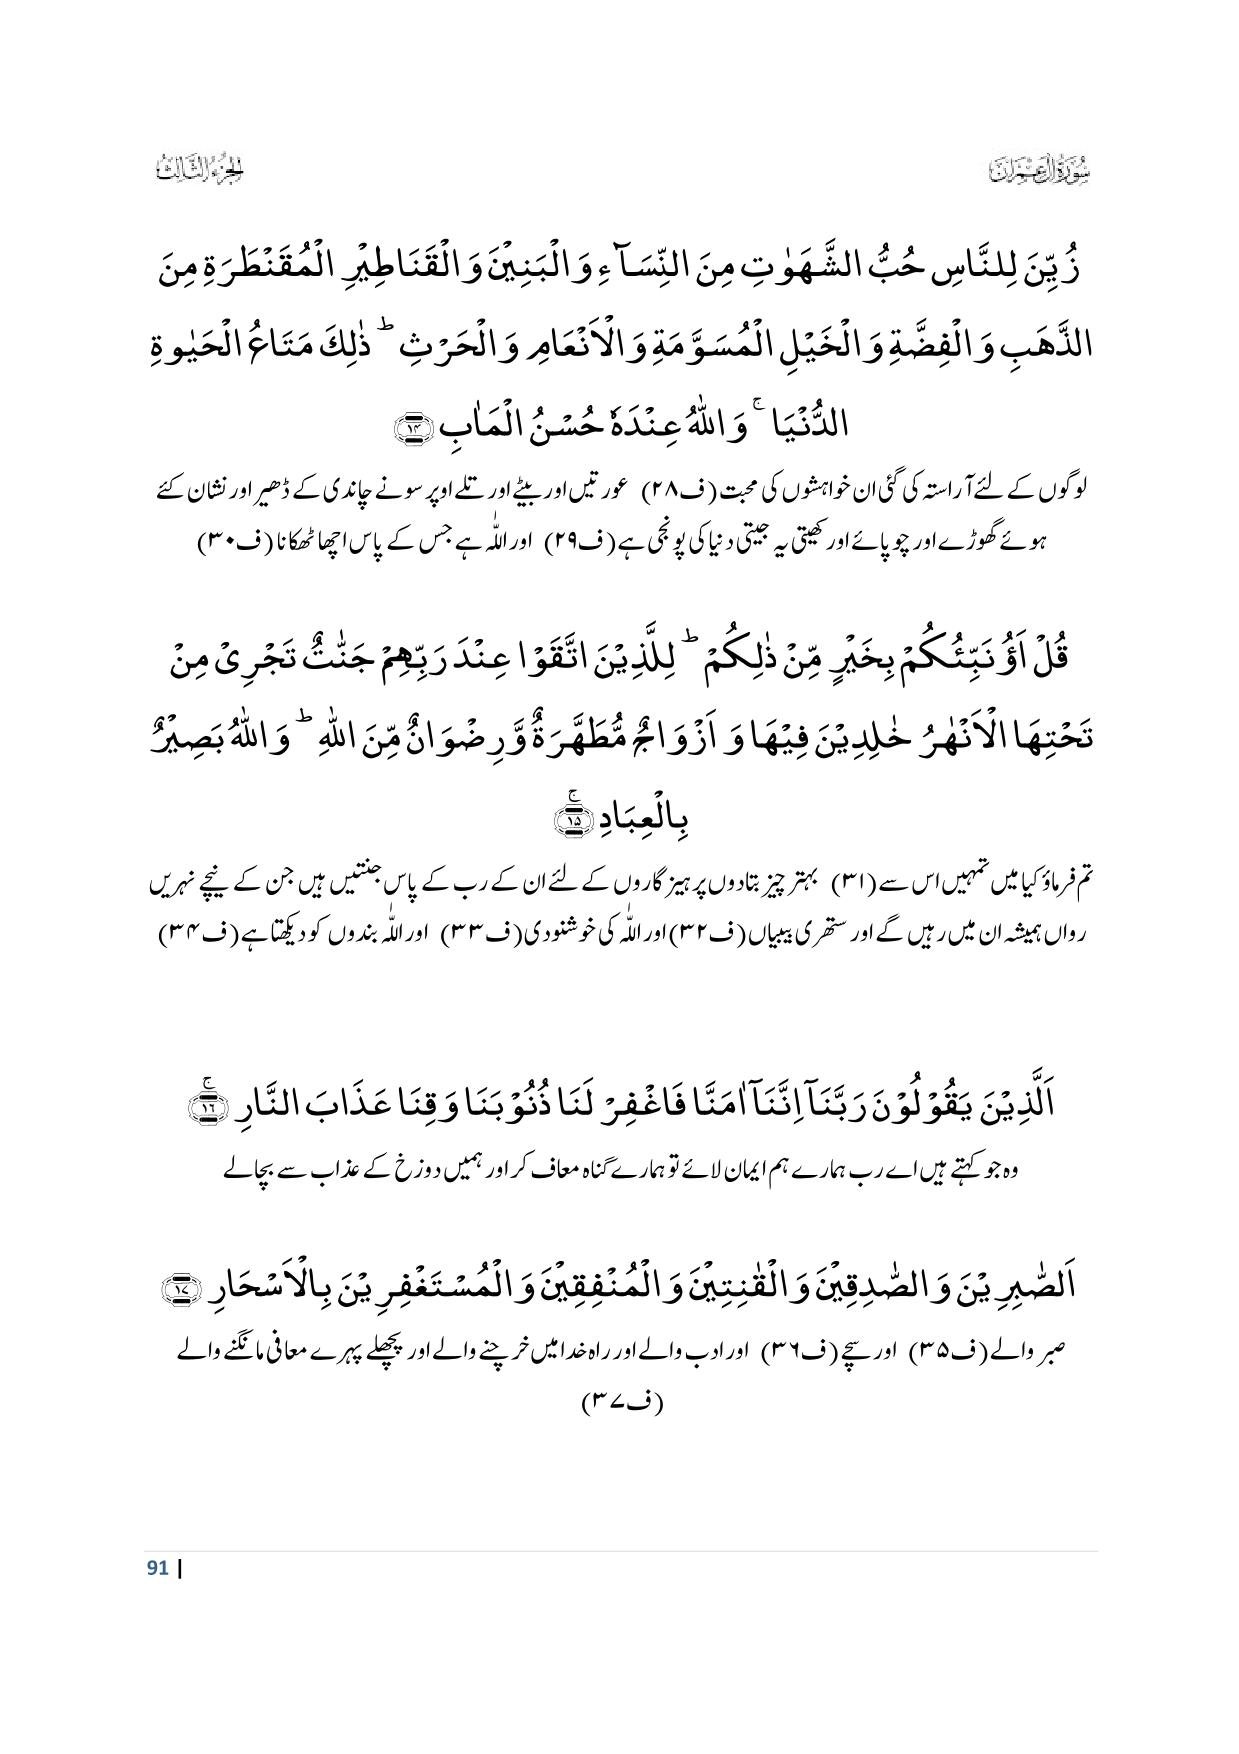 سُوْرَةُ اٰلِ عِمْرَانَ
الجُزْءُ الثَّالِث
زُيِّنَ لِلنَّاسِ حُبُّ الشَّهَوٰتِ مِنَ النِّسَآءِ وَالْبَنِيْنَ وَالْقَنَاطِيْرِ الْمُقَنْطَرَةِ مِنَ
الذَّهَبِ وَالْفِضَّةِ وَالْخَيْلِ الْمُسَوَّمَةِ وَالْاَنْعَامِ وَالْحَرْثِ ؕ ذٰلِكَ مَتَاعُ الْحَيٰوةِ
الدُّنْيَا ۚ وَاللّٰهُ عِنْدَهٗ حُسْنُ الْمَاٰبِ ﴿۱۴﴾
لوگوں کے لئے آراستہ کی گئی ان خواہشوں کی محبت (ف۲۸) عورتیں اور بیٹے اور تلے اوپر سونے چاندی کے ڈھیر اور نشان کئے
ہوئے گھوڑے اور چوپائے اور کھیتی یہ جیتی دنیا کی پونجی ہے (ف۲۹) اور اللّٰہ ہے جس کے پاس اچھا ٹھکانا (ف۳۰)
قُلْ اَؤُنَبِّئُكُمْ بِخَيْرٍ مِّنْ ذٰلِكُمْ ؕ لِلَّذِيْنَ اتَّقَوْا عِنْدَ رَبِّهِمْ جَنّٰتٌ تَجْرِىْ مِنْ
تَحْتِهَا الْاَنْهٰرُ خٰلِدِيْنَ فِيْهَا وَ اَزْوَاجٌ مُّطَهَّرَةٌ وَّرِضْوَانٌ مِّنَ اللّٰهِ ؕ وَاللّٰهُ بَصِيْرٌۢ
بِالْعِبَادِ ﴿ۚ۱۵﴾
تم فرماؤ کیا میں تمہیں اس سے (۳۱) بہتر چیز بتادوں پرہیزگاروں کے لئے ان کے رب کے پاس جنتیں ہیں جن کے نیچے نہریں
رواں ہمیشہ ان میں رہیں گے اور ستھری بیبیاں (ف۳۲) اور اللّٰہ کی خوشنودی (ف۳۳) اور اللّٰہ بندوں کو دیکھتا ہے (ف۳۴)
اَلَّذِيْنَ يَقُوْلُوْنَ رَبَّنَآ اِنَّنَآ اٰمَنَّا فَاغْفِرْ لَنَا ذُنُوْبَنَا وَقِنَا عَذَابَ النَّارِ ﴿ۚ۱۶﴾
وہ جو کہتے ہیں اے رب ہمارے ہم ایمان لائے تو ہمارے گناہ معاف کر اور ہمیں دوزخ کے عذاب سے بچالے
اَلصّٰبِرِيْنَ وَالصّٰدِقِيْنَ وَالْقٰنِتِيْنَ وَالْمُنْفِقِيْنَ وَالْمُسْتَغْفِرِيْنَ بِالْاَسْحَارِ ﴿۱۷﴾
صبر والے (ف۳۵) اور سچے (ف۳۶) اور ادب والے اور راہ خدا میں خرچنے والے اور پچھلے پہرے معافی مانگنے والے
(ف۳۷)
91 |